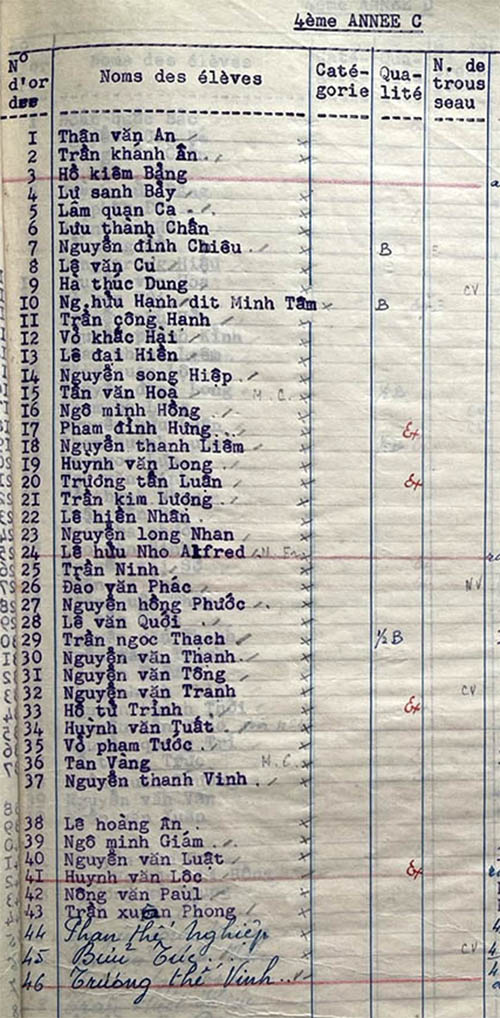 4ème ANNEE C
N° d'or des Noms des élèves Caté- gorie Qua- lité N. de trous seau
1 Thân văn An
2 Trần khánh Ân
3 Hồ kiêm Bảng
4 Lư sanh Bảy
5 Lâm quan Ca
6 Lưu thành Chấn
7 Nguyễn đình Chiêu B
8 Lê văn Cu
9 Hà thúc Dung CV
10 Ng.hữu Hạnh dit Minh Tâm B
11 Trần công Hạnh
12 Võ khắc Hài
13 Lê đại Hiền
14 Nguyễn song Hiệp
15 Tân văn Hoa M.C.
16 Ngô minh Hồng
17 Phạm đình Hưng Ex
18 Nguyễn thanh Liêm
19 Huỳnh văn Long
20 Trương tấn Luân Ex
21 Trần kim Lương
22 Lê hiền Nhân
23 Nguyễn long Nhan
24 Lê hữu Nho Alfred
25 Trần Ninh
26 Đào văn Phác NV
27 Nguyễn hồng Phước
28 Lê văn Quới
29 Trần ngọc Thạch ½ B
30 Nguyễn văn Thanh
31 Nguyễn văn Tông
32 Nguyễn văn Tranh CV
33 Hồ tử Trình Ex
34 Huỳnh văn Tuất
35 Võ phạm Tước
36 Tan Vàng M.C.
37 Nguyễn thanh Vinh
38 Lê hoàng Ân
39 Ngô minh Giám
40 Nguyễn văn Luật
41 Huynh văn Lộc Ex
42 Nông văn Paul
43 Trần xuân Phong
44 Phan thế Nghiệp
45 Bửu Túc CV
46 Trương thế Vinh